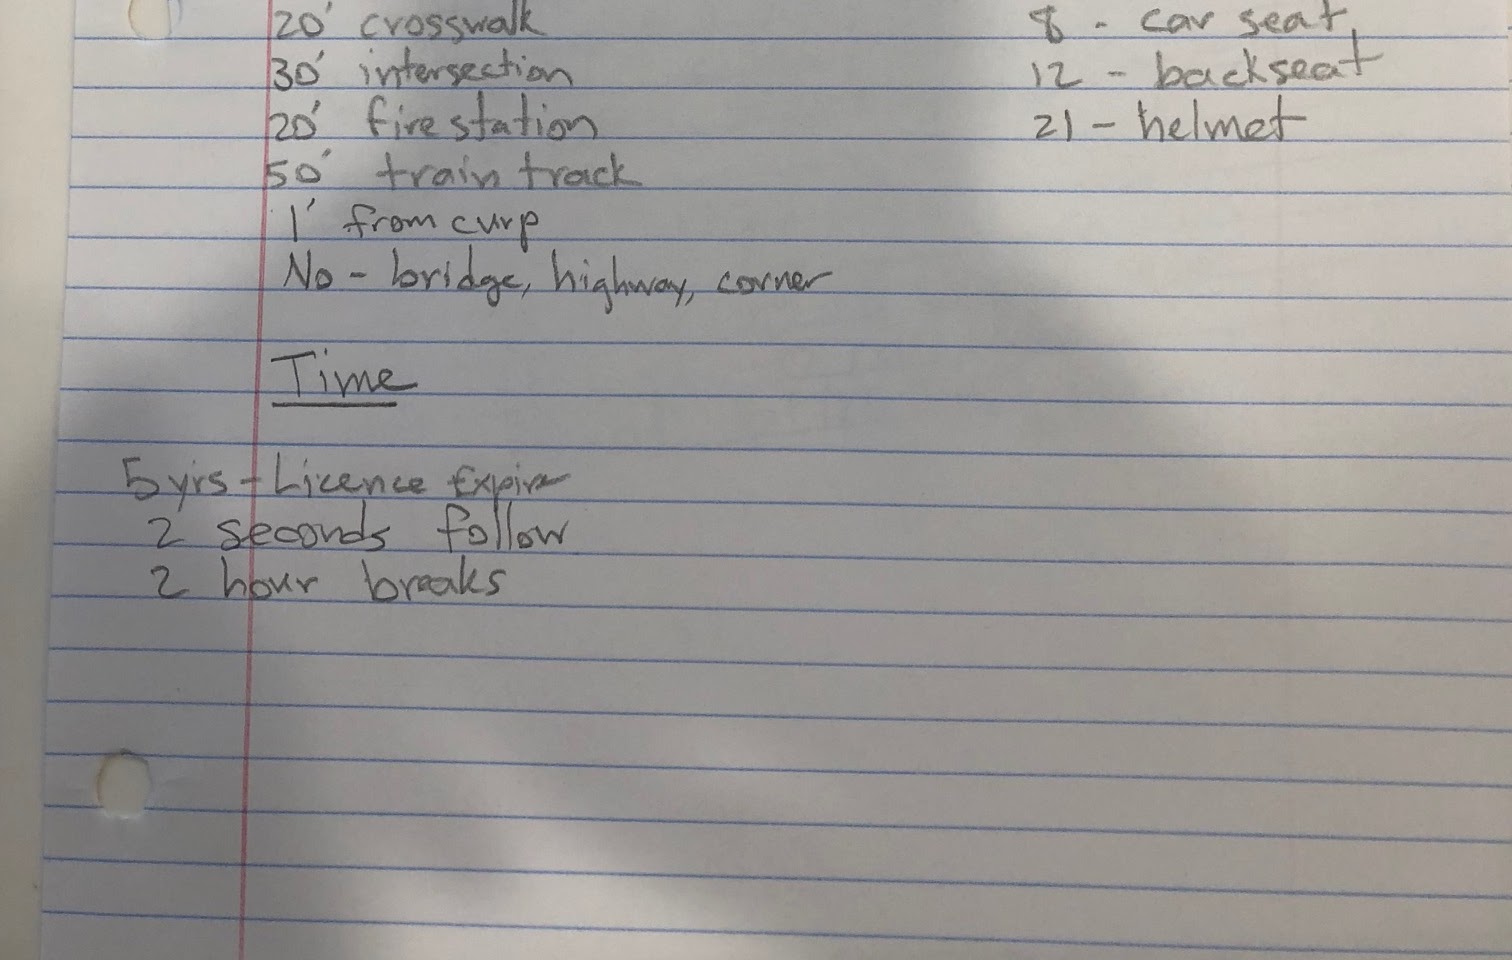 20' crosswalk
30' intersection
20' fire station
50' train track
1' from curp
No - bridge, highway, corner
8 - car seat
12 - backseat
21 - helmet
Time
5 yrs - Licence Expire
2 seconds follow
2 hour breaks